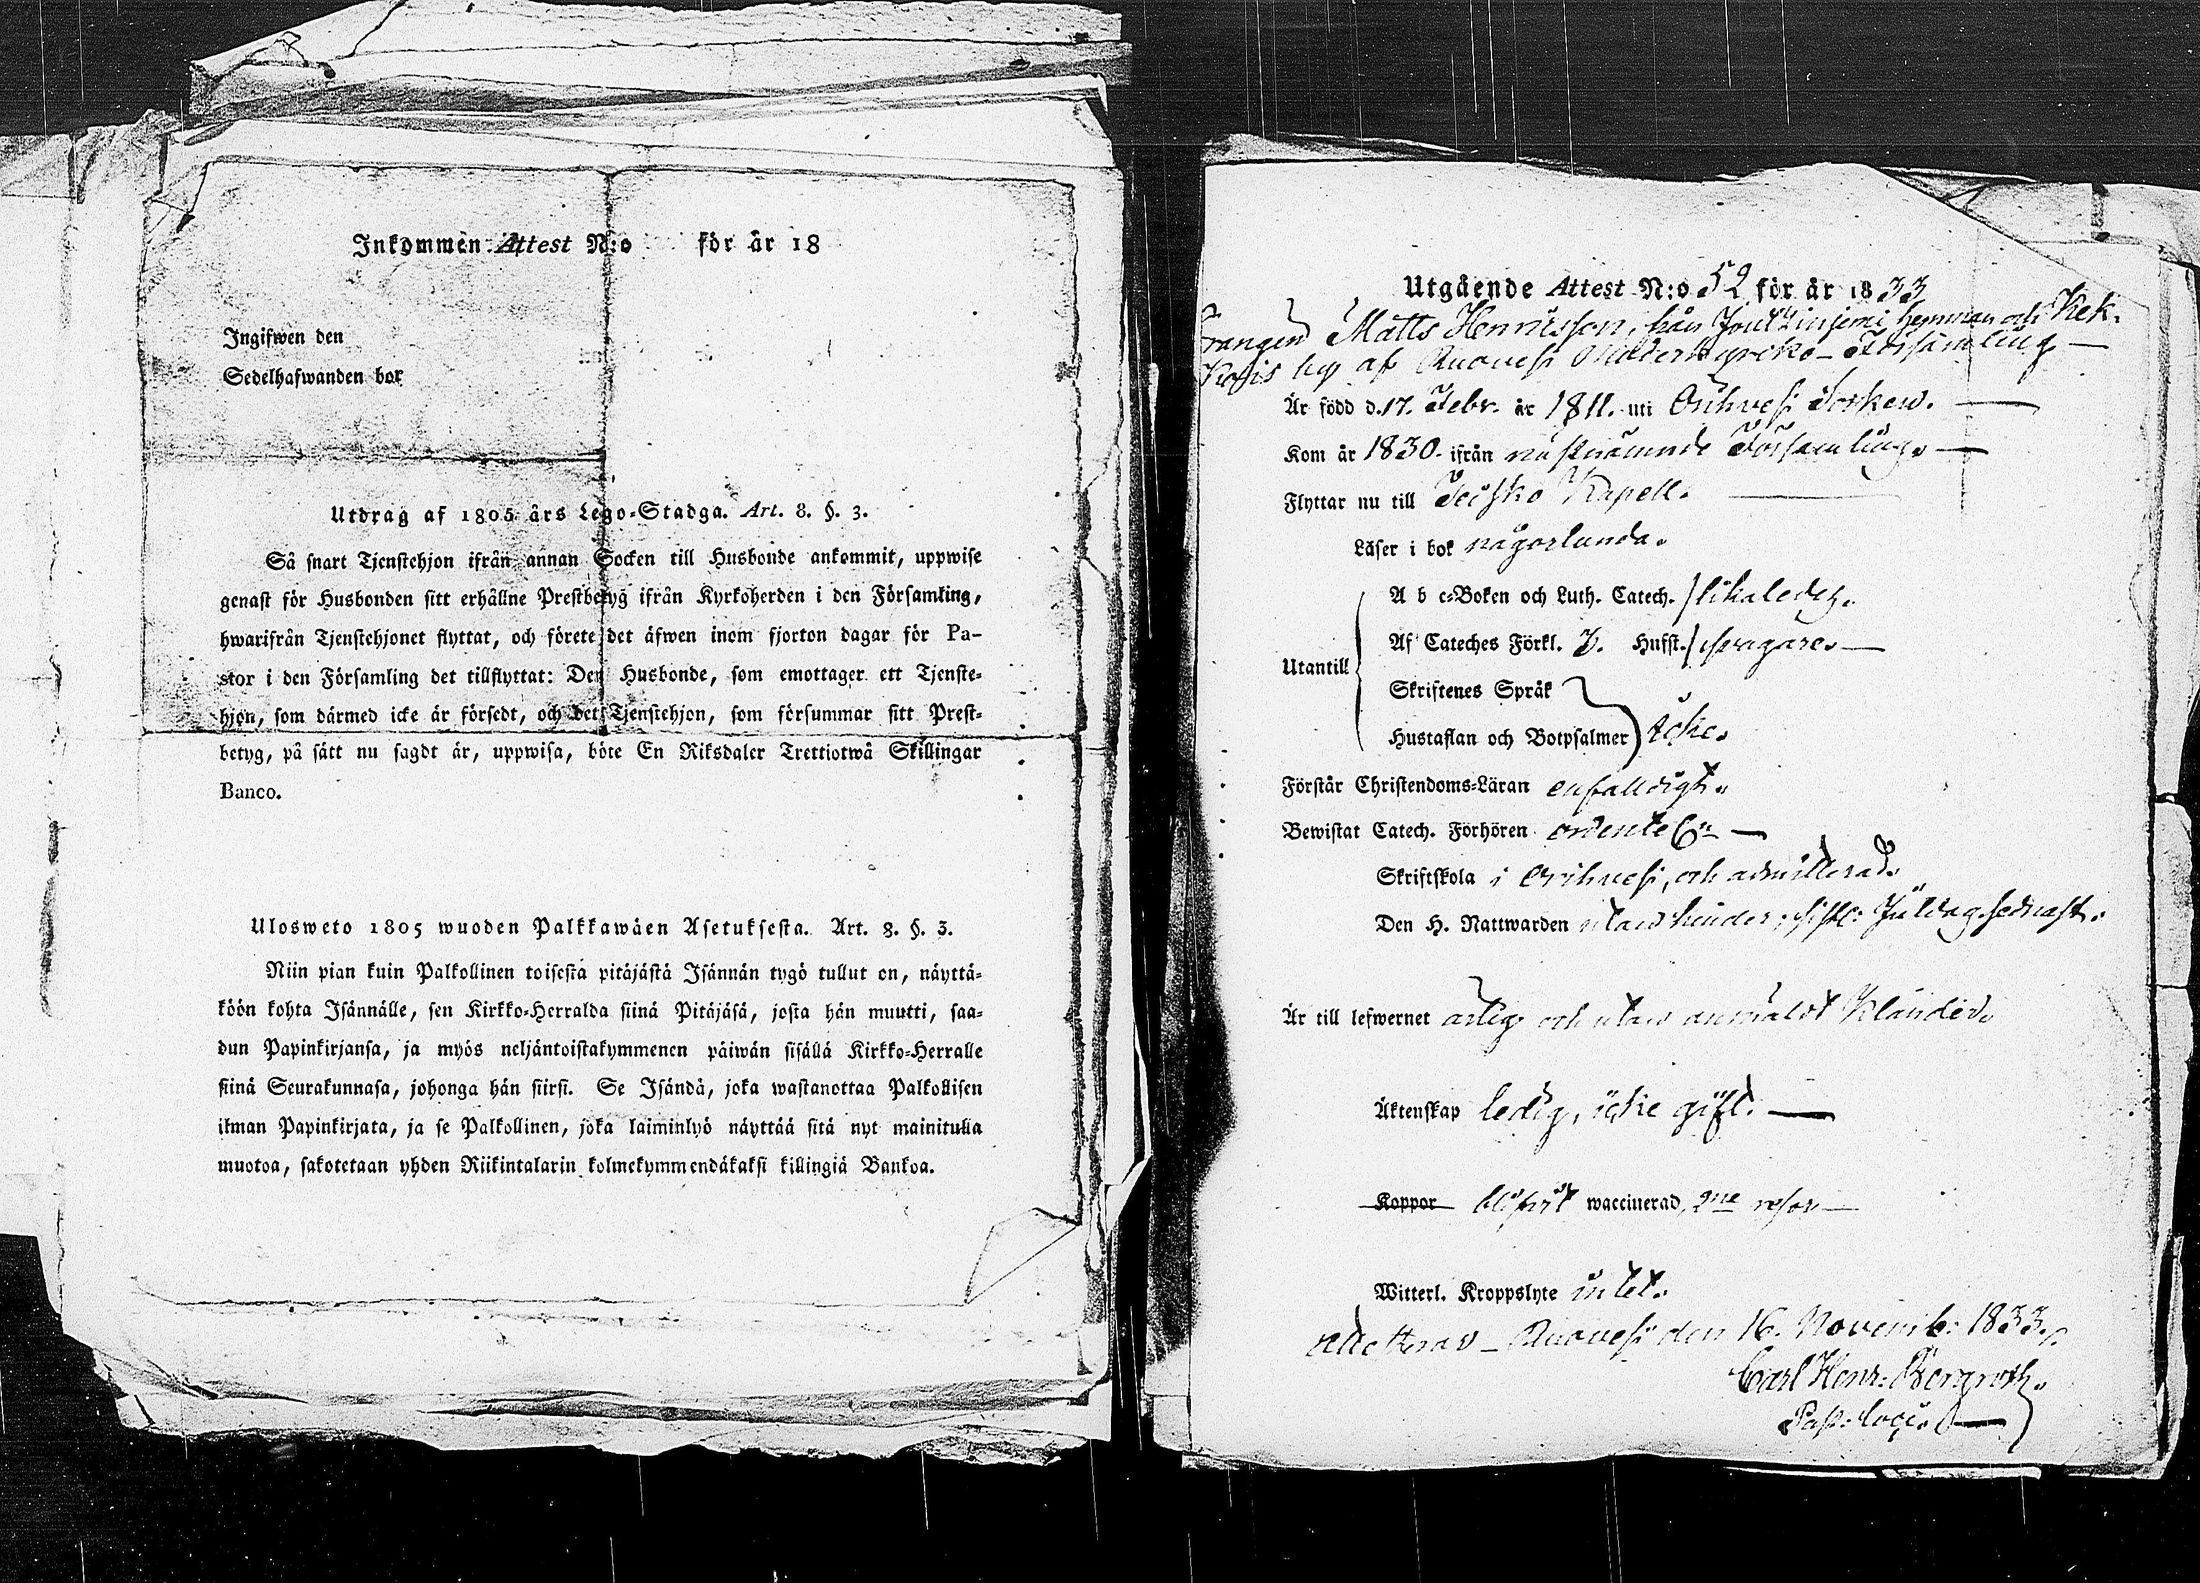 Inkommen Attest N:o för år 18
Ingifwen den
Sedelhafwanden bor
Utdrag af 1805 års Lego-Stadga. Art. 8. §. 3.
Så snart Tjenstehjon ifrån annan Socken till Husbonde ankommit, uppwise
genast för Husbonden sitt erhållne Prestbetyg ifrån Kyrkoherden i den Församling,
hwarifrån Tjenstehjonet flyttat, och förete det äfwen inom fjorton dagar för Pa-
stor i den Församling det tillflyttat: Den Husbonde, som emottager ett Tjenste-
hjon, som därmed icke är försedt, och det Tjenstehjon, som försummar sitt Prest-
betyg, på sätt nu sagdt är, uppwisa, böte En Riksdaler Trettiotwå Skillingar
Banco.
Ulosweto 1805 wuoden Palkkawäen Asetuksesta. Art. 8. §. 3.
Niin pian kuin Palkollinen toisesta pitäjästä Isännän tygö tullut on, näyttä-
köön kohta Isännälle, sen Kirkko-Herralda siinä Pitäjäsä, josta hän muutti, saa-
dun Papinkirjansa, ja myös neljäntoistakymmenen päiwän sisällä Kirkko-Herralle
siinä Seurakunnasa, johonga hän siirsi. Se Isändä, joka wastanottaa Palkollisen
ilman Papinkirjata, ja se Palkollinen, joka laiminlyö näyttää sitä nyt mainitulla
muotoa, sakotetaan yhden Riikintalarin kolmekymmendäkaksi killingiä Bankoa.
Utgående Attest N:o 52 för år 1833
Drängen Matts Henricsson, från hemman och Kek-
by af Moderkyrko-Församling
Är född d. 17. Febr. år 1811. uti Sorken.
Kom år 1830. ifrån nästnämnde Församling.
Flyttar nu till Kapell.
Läser i bok någorlunda.
A b c-Boken och Luth. Catech. likaledes.
Af Cateches Förkl. 3. Hufst. swagare.
Utantill
Skriftenes Språk
Hustaflan och Botpsalmer icke.
Förstår Christendoms-Läran enfaldigt.
Bewistat Catech. Förhören ordentel:n
Skriftskola i och admitterad.
Den H. Nattwarden utan hinder; sistl: Juldag sednast.
Är till lefwernet ärlig och utan anmäldt klander.
Äktenskap ledig, icke gift.
Koppor blifwit waccinerad, 2ne resor
Witterl. Kroppslyte intet.
Attesterar den 16. Novemb: 1833.
Carl Henr: Bergroth.
Past: loci.